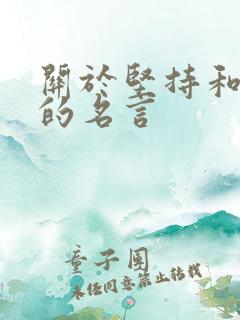 關於堅持和
的名言
童子園
未經同意禁止轉載